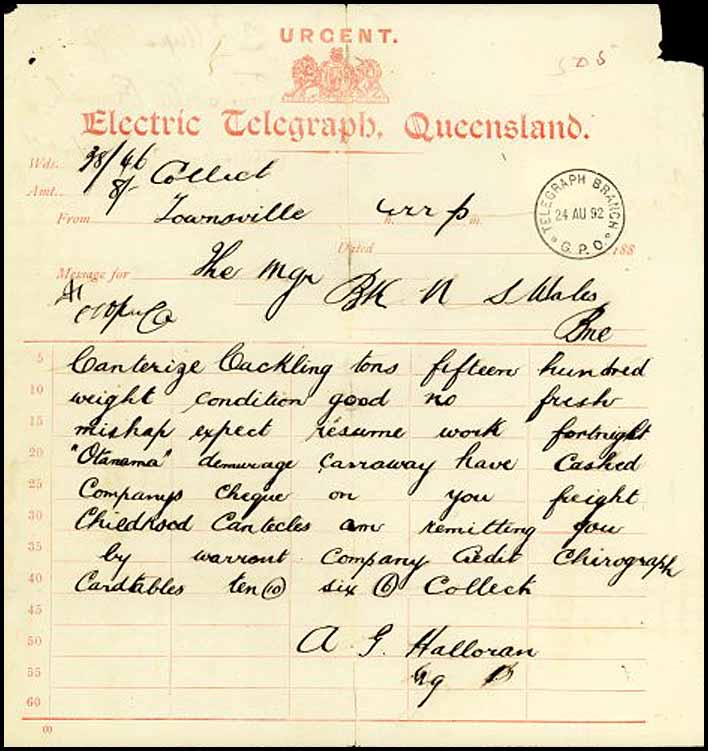 URGENT.
5 D 5
Electric Telegraph, Queensland.
Wds. 38/46
Amt. 8/- Collect
TELEGRAPH BRANCH
24 AU 92
G.P.O.
From Townsville h. p m.
Dated 188
Message for The Mgr
BK N S Wales
Bne
5 Canterize Cackling tons fifteen hundred
10 weight condition good no fresh
15 mishap expect résume work fortnight
20 "Otanama" demurage Carraway have Cashed
25 Companys cheque on you freight
30 Childhood Cantecles am remitting you
35 by warrant Company Credit Chirograph
40 Cardtables ten (10) six (6) Collect
45
50 A G Halloran
55
60
00